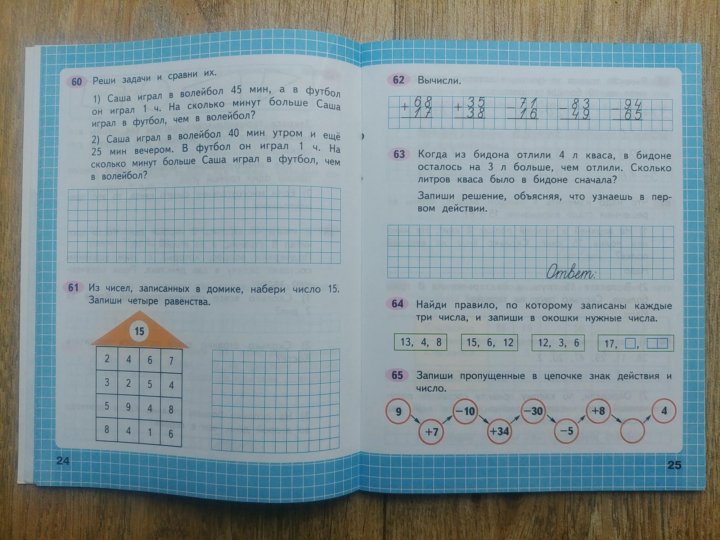 60 Реши задачи и сравни их.
1) Саша играл в волейбол 45 мин, а в футбол
он играл 1 ч. На сколько минут больше Саша
играл в футбол, чем в волейбол?
2) Саша играл в волейбол 40 мин утром и ещё
25 мин вечером. В футбол он играл 1 ч. На
сколько минут больше Саша играл в футбол, чем
в волейбол?
61 Из чисел, записанных в домике, набери число 15.
Запиши четыре равенства.
15
2 4 6 7
3 2 5 4
5 9 4 8
8 4 1 6
24
62 Вычисли.
+68 +35 −71 −83 −94
17 38 16 49 65
63 Когда из бидона отлили 4 л кваса, в бидоне
осталось на 3 л больше, чем отлили. Сколько
литров кваса было в бидоне сначала?
Запиши решение, объясняя, что узнаешь в пер-
вом действии.
Ответ:
64 Найди правило, по которому записаны каждые
три числа, и запиши в окошки нужные числа.
13, 4, 8 15, 6, 12 12, 3, 6 17, ,
65 Запиши пропущенные в цепочке знак действия и
число.
9 −10 −30 +8 4
+7 +34 −5
25